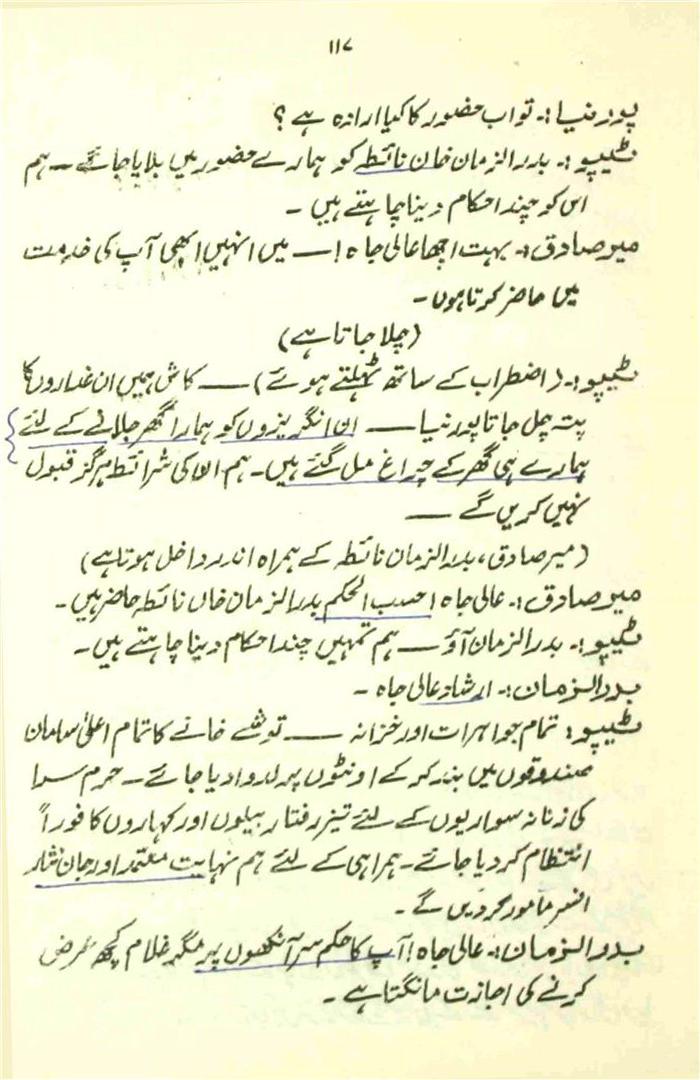 ۱۱۷
پورنیا:۔ تو اب حضور کا کیا ارادہ ہے ؟
ٹیپو:۔ بدر الزمان خان نائطہ کو ہمارے حضور میں بلایا جائے ۔ ہم
اس کو چند احکام دینا چاہتے ہیں ۔
میر صادق:۔ بہت اچھا عالی جاہ ! — میں انہیں ابھی آپ کی خدمت
میں حاضر کرتا ہوں ۔
(چلا جاتا ہے)
ٹیپو:۔ (اضطراب کے ساتھ ٹہلتے ہوئے) — کاش ہمیں ان غداروں کا
پتہ چل جاتا پورنیا — ان انگریزوں کو ہمارا گھر جلانے کے لئے
ہمارے ہی گھر کے چراغ مل گئے ہیں ۔ ہم ان کی شرائط ہرگز قبول
نہیں کریں گے —
(میر صادق، بدر الزمان نائطہ کے ہمراہ اندر داخل ہوتا ہے)
میر صادق:۔ عالی جاہ ! حسب الحکم بدر الزمان خاں نائطہ حاضر ہیں ۔
ٹیپو:۔ بدر الزمان آؤ — ہم تمہیں چند احکام دینا چاہتے ہیں ۔
بدر الزمان:۔ ارشاد عالی جاہ ۔
ٹیپو: تمام جواہرات اور خزانہ — توشے خانے کا تمام اعلیٰ سامان
صندوقوں میں بند کر کے اونٹوں پر لدوا دیا جائے ۔ حرم سرا
کی زنانہ سواریوں کے لئے تیز رفتار بیلوں اور کہاروں کا فوراً
انتظام کر دیا جائے ۔ ہمراہی کے لئے ہم نہایت معتمد اور جان نثار
افسر مامور کر دیں گے ۔
بدر الزمان:۔ عالی جاہ ! آپ کا حکم سر آنکھوں پر مگر غلام کچھ عرض
کرنے کی اجازت مانگتا ہے ۔